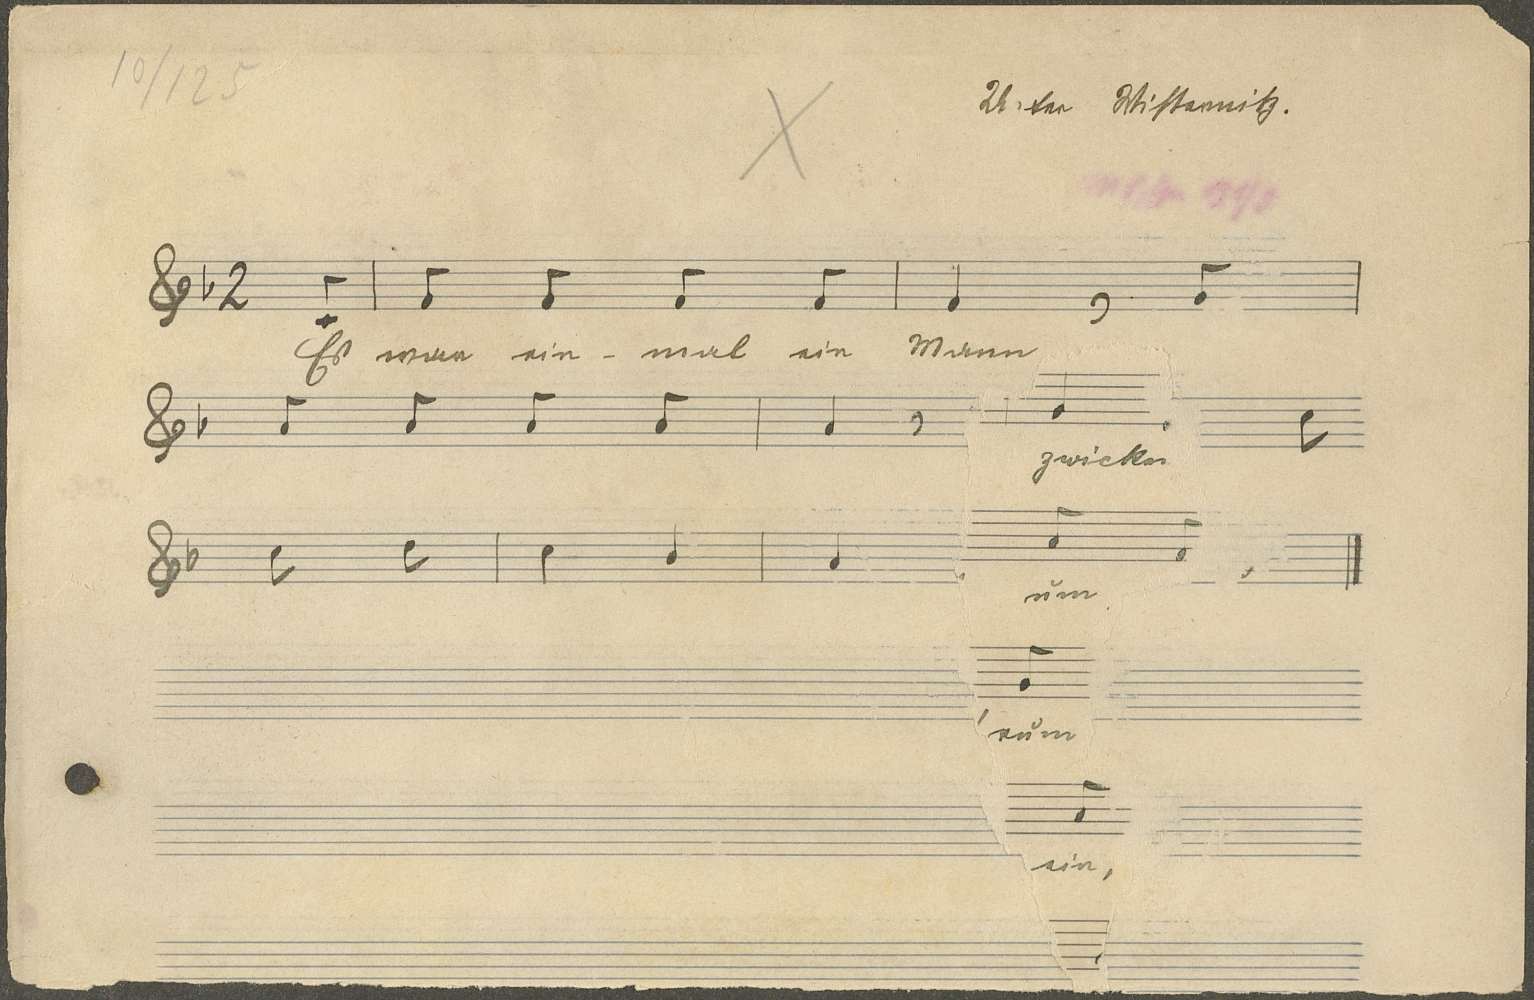 10/125
X
Unter Wisternitz.
2
Es war ein - mal ein Mann
zwicken
um
'rum
ein,